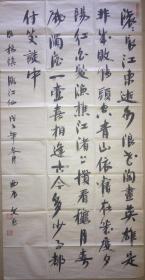 滚滚长江东逝水浪花淘尽英雄是
非成败转头空青山依旧在几度夕
阳红白发渔樵江渚上惯看秋月春
风浊酒一壶喜相逢古今多少事都
付笑谈中